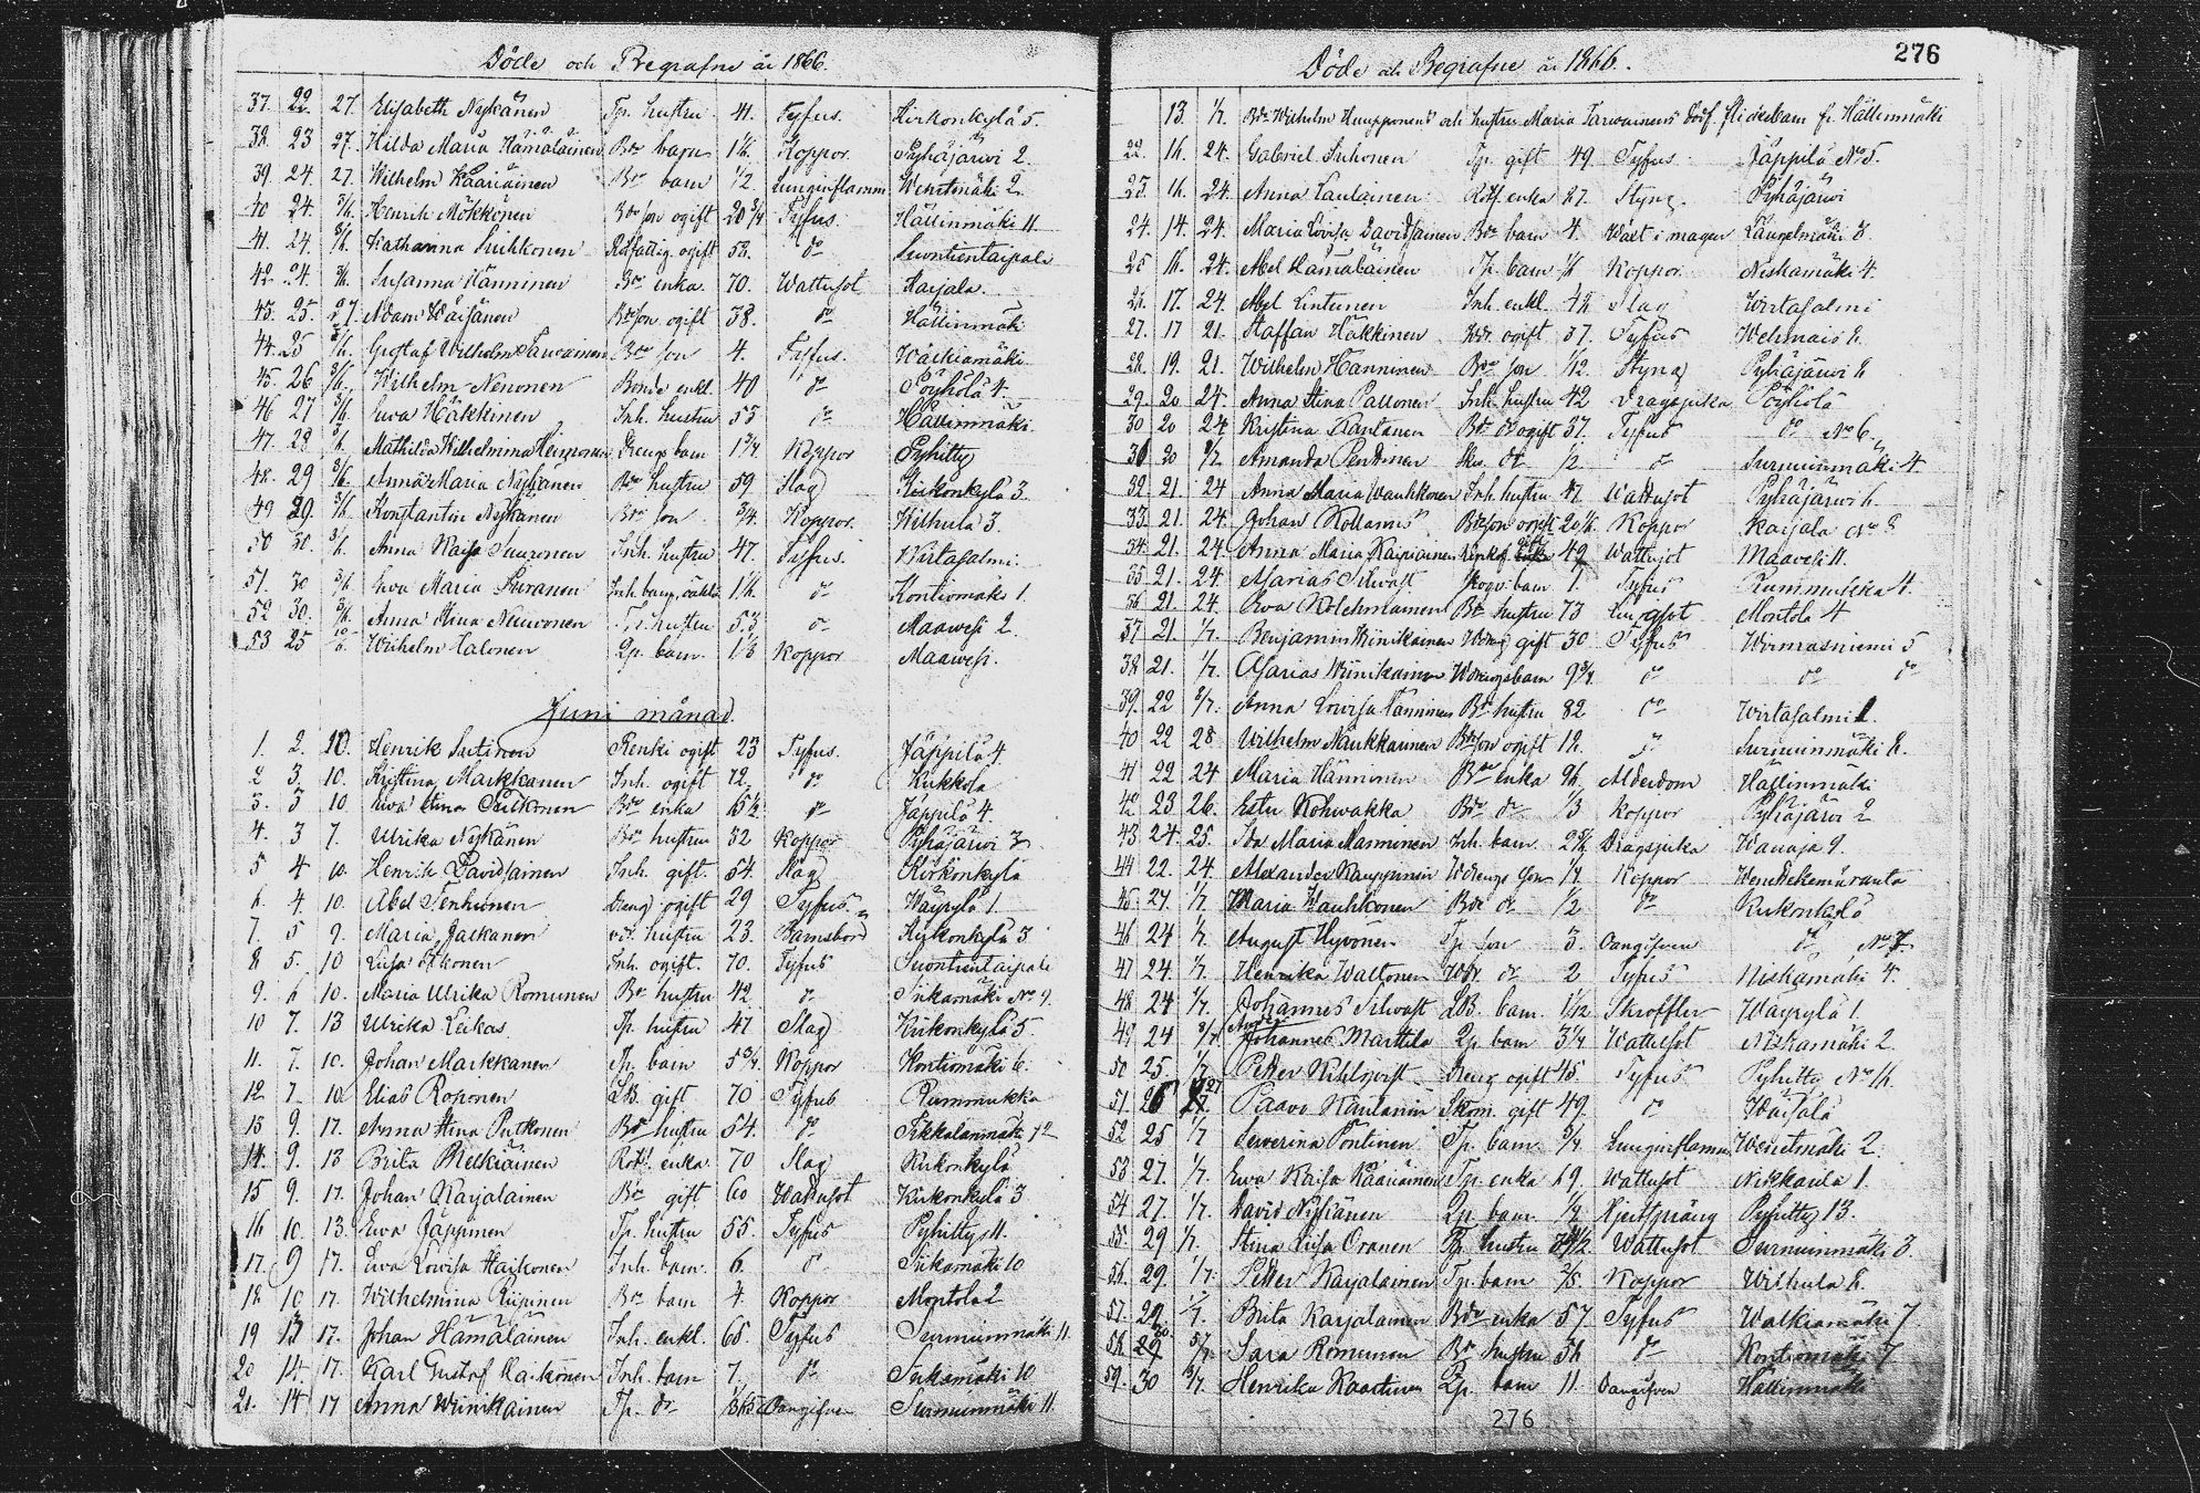 Döde och Begrafne år 1866.
37. 22. 27. Elisabeth Nykänen Tp. hustru 41. Tyfus. Kirkonkylä 5.
38. 23 27. Hilda Maria Hämäläinen Bde barn 1½. Koppor. Pyhäjärwi 2.
39. 24. 27. Wilhelm Kääriäinen Bde barn ½. Lunginflamm. Wenetmäki 2.
40 24. 3/6. Henrik Mökkönen Bde son ogift 20¾ Tyfus. Hällinmäki 11.
41. 24 3/6. Katharina Suihkonen Rotfattig. ogift 58. do Suontientaipale
42. 24. 3/6. Susanna Hänninen Bde enka. 70. Wattusot Karjala.
43. 25. 27. Adam Wäisänen Bdeson ogift 38. do Hällinmäki
44. 25 3/6. Gustaf Wilhelm Tarwainen Bde son 4. Tyfus. Wäikiämäki
45. 26 3/6. Wilhelm Nenonen Bonde enkl. 40 do Pöyhölä 4.
46 27 3/6. Ewa Häkkinen Inh. hustru 55 do Hällinmäki
47. 28 3/6. Mathilda Wilhelmina Heimonen Drengs barn 1¾. Koppor Pyhitty
48. 29 3/6. Anna Maria Nykänen Bde hustru 59 Slag Kirkonkylä 3.
49 29. 3/6. Konstantin Nykänen Bde son ¾. Koppor. Wilhula 3.
50 30. 3/6. Anna Kaisa Suuronen Inh. hustru 47. Tyfus. Wirtasalmi.
51. 30 3/6. Ewa Maria Suranen Inh. barn, oäkta 1½. do Kontiomäki 1.
52 30. 3/6. Anna Stina Neuvonen Tp. hustru 53 do Maawesi 2.
53 25 10/6. Wilhelm Talonen Tp. barn. 1⅓ Koppor Maawesi.
Juni månad.
1. 2. 10. Henrik Sutinen Renki ogift 23 Tyfus. Jäppilä 4.
2 3. 10. Kristina Markkanen Inh. ogift 72. do Kirkkola
3. 3 10 Ewa Stina Putkonen Bde enka 65½. do Jäppilä 4.
4. 3 7. Ulrika Nykänen Bde hustru 32 Koppor Pyhäjärwi 3
5 4 10. Henrik Davidsainen Inh. gift. 54. Slag Kirkonkylä
6. 4. 10. Abel Tenhunen Dreng ogift 29 Tyfus. Wäyrylä 1.
7. 5 9. Maria Jalkanen hustru 23. Barnsbörd Kirkonkylä 3
8 5. 10 Liisa Itkonen Inh. ogift. 70. Tyfus Suontientaipale
9. 6 10. Maria Ulrika Romunen Bde hustru 42. do Siikamäki No 9.
10 7. 13 Ulrika Leikas Tp. hustru 47 Slag Kirkonkylä 5
11. 7. 10. Johan Markkanen Tp. barn 5¾. Koppor Kontiomäki 6.
12 7 10. Elias Roponen LB. gift 70 Tyfus Rummukka
13 9. 17. Anna Stina Putkonen Bde hustru 54. do Tikkalanmäki 12
14. 9. 13 Brita Melkiäinen Roth. enka. 70 Slag Kirkonkylä
15 9. 17. Johan Karjalainen Bde gift 60 Wattusot Kirkonkylä 3
16 10. 13. Ewa Jäppinen Tp. hustru 55. Tyfus Pyhitty 11.
17. 9 17. Ewa Lowisa Haikonen Inh. barn. 6. do Siikamäki 10
18 10 17. Wilhelmina Riipinen Bde barn 4. Koppor Montola 2
19 13 17. Johan Hämäläinen Inh. enkl. 65. Tyfus Surnuinmäki 11
20 14. 17. Karl Gustaf Haikonen Inh. barn 7. do Siikamäki 10
21. 14 17 Anna Wiinikainen Tp. do Oangifven Surnuinmäki 11.
276
Döde och Begrafne år 1866.
13. 1/7. Bde Wilhelm Humpponens och hustru Maria Tarwainens dödf. flickebarn fr. Hällinmäki
22. 16. 24. Gabriel Suhonen Tp. gift 49. Tyfus Jäppilä No 5.
23. 16. 24. Anna Laulainen Roth. enka 87. Styng. Pyhäjärwi
24. 14. 24. Maria Lovisa Davidsainen Bde barn 4. Wäxt i magen Längelmäki 8
25 16. 24. Abel Hämäläinen Tp. barn 1/6 Koppor. Niskamäki 4.
26. 17. 24. Abel Lintunen Inh. enkl. 42 Slag Wirtasalmi
27. 17 21. Staffan Häkkinen ogift 37. Tyfus Wehmais 6.
28. 19. 21. Wilhelm Hänninen Bde son 1/12. Styng Pyhäjärwi 6
29. 20 24. Anna Stina Pallonen Inh. hustru 42 Dragsjuka Pöyhölä
30 20 24 Kristina Kaulanen Bde do ogift 37. Tyfus do No 6.
31 20 8/7 Amanda Penttinen Sku. do ½. do Surnuinmäki 4
32 21 24 Anna Maria Wauhkonen Inh. hustru 47 Wattusot Pyhäjärwi 6.
33. 21. 24. Johan Kollanus Bdeson ogift 20½. Koppor Karjala No 8
34. 21. 24. Anna Maria Kaipiainen 42 Wattusot Maawesi 11.
35 21. 24. Asarias Silwast Skogv. barn 1. Tyfus Rummukka 4.
36 21. 24. Ewa Kolehmainen Bde hustru 73 Lungsot Montola 4
37 21. 1/7. Benjamin Wiinikainen gift 30 Tyfus Wirmasniemi 5
38 21. 1/7. Asarias Wiinikainen 9¾. do do do
39. 22 8/7. Anna Lowisa Hänninen Bde hustru 82 do Wirtasalmi 1.
40 22 28 Wilhelm Naukkarinen Bdeson ogift 12. do Surnuinmäki 8.
41 22 24 Maria Hänninen Bde enka 96. Ålderdom Hällinmäki
42 23 26. Ester Kohwakka Bde do ⅓ Koppor Pyhäjärwi 2
43 24. 25. Ida Maria Manninen Inh. barn Dragsjuka Wanaja 9.
44 22. 24. Alexander Kauppinen Wdrengs son ¼ Koppor Wenetekemäranta
45 24. 1/7. Maria Wauhkonen Bde do ½ do Kirkonkylä
46 24 1/7. August Hyvönen Tp. son 3. Oangifven do No 7
47 24. 1/7. Henrika Waltonen do 2 Tyfus Niskamäki 4.
48 24 1/7. Johannes Silwast LB. barn. 1 1/12 Skroffler Wäyrylä 1.
49 24 8/7. Anders Johannes Marttila Tp barn 3¼ Wattusot Niskamäki 2.
50 25. 1/7. Petter Kihlqvist Dreng ogift 45. Tyfus Pyhitty No 16.
51. 26 27 Paavo Kaulanen Skom. gift 49. do Wäisälä
52 25 1/7 Severina Pöntinen Tp. barn ¾ Lunginflamm. Wenetmäki 2.
53 27. 1/7. Ewa Kaisa Kääriäinen Tp. enka 69. Wattusot Nikkaula 1.
54 27. 1/7. David Nykänen Tp. barn ¼ Hjertspräng Pyhitty 13.
55. 29 1/7. Stina Liisa Oranen Tp. hustru Wattusot Surnuinmäki 3.
56. 29. 1/7. Petter Karjalainen Tp. barn ⅖. Koppor Wilhula 6.
57. 29. 1/7. Brita Karjalainen Bde enka 57 Tyfus Walkiamäki 7
58. 29 5/7. Sara Romunen Bde hustru 56 do Kontiomäki 7
59. 30 Henrika Kaartinen Tp. barn 11. Oangifven Hällinmäki
276